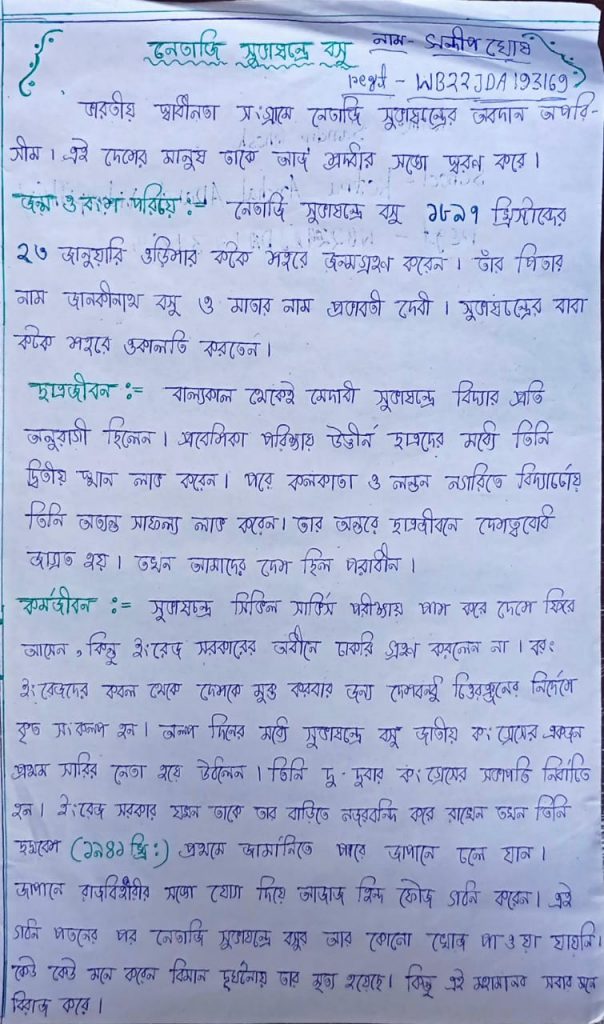 নেতাজি সুভাষচন্দ্রে বসু নাম - সন্দীপ ঘোষ
Regd - WB22JDA193169
ভারতীয় স্বাধীনতা সংগ্রামে নেতাজি সুভাষচন্দ্রের অবদান অপরি-
সীম । এই দেশের মানুষ তাকে আজ শ্রদ্ধার সঙ্গে স্মরণ করে ।
জন্ম ও বংশ পরিচয় :- নেতাজি সুভাষচন্দ্রে বসু ১৮৯৭ খ্রিস্টাব্দের
২৩ জানুয়ারি ওড়িশার কটক শহরে জন্মগ্রহণ করেন । তাঁর পিতার
নাম জানকীনাথ বসু ও মাতার নাম প্রভাবতী দেবী । সুভাষচন্দ্রের বাবা
কটক শহরে ওকালতি করতেন ।
ছাত্রজীবন :- বাল্যকাল থেকেই মেধাবী সুভাষচন্দ্রে বিদ্যার প্রতি
অনুরাগী ছিলেন । প্রবেশিকা পরিক্ষায় উত্তীর্ন ছাত্রদের মধ্যে তিনি
দ্বিতীয় স্থান লাভ করেন । পরে কলকাতা ও লন্ডন নগরিতে বিদ্যাচর্চায়
তিনি অত্যন্ত সাফল্য লাভ করেন । তার অন্তরে ছাত্রজীবনে দেশত্ববোধ
জাগ্রত হয় । তখন আমাদের দেশ ছিল পরাধীন ।
কর্মজীবন :- সুভাষচন্দ্র সিভিল সার্ভিস পরীক্ষায় পাশ করে দেশে ফিরে
আসেন, কিন্তু ইংরেজ সরকারের অধীনে চাকরি গ্রহণ করলেন না । বরং
ইংরেজদের কবল থেকে দেশকে মুক্ত করবার জন্য দেশবন্ধু চিত্তরঞ্জনের নির্দেশে
কৃত সংকল্প হন । অল্প দিনের মধ্যে সুভাষচন্দ্রে বসু জাতীয় কংগ্রেসের একজন
প্রথম সারির নেতা হয়ে উঠলেন । তিনি দু-দুবার কংগ্রেসের সভাপতি নির্বাচিত
হন । ইংরেজ সরকার যখন তাকে তার বাড়িতে নজরবন্দি করে রাখেন তখন তিনি
ছদ্মবেশে (১৯৪১ খ্রি:) প্রথমে জার্মানিতে পরে জাপানে চলে যান ।
জাপানে রাসবিহারীর সঙ্গে যোগ দিয়ে আজাদ হিন্দ ফৌজ গঠন করেন । এই
গঠন পতনের পর নেতাজি সুভাষচন্দ্রে বসুর আর কোনো খোঁজ পাওয়া যায়নি ।
কেউ কেউ মনে করেন বিমান দুর্ঘটনায় তার মৃত্যু হয়েছে । কিন্তু এই মহামানব সবার মনে
বিরাজ করে ।